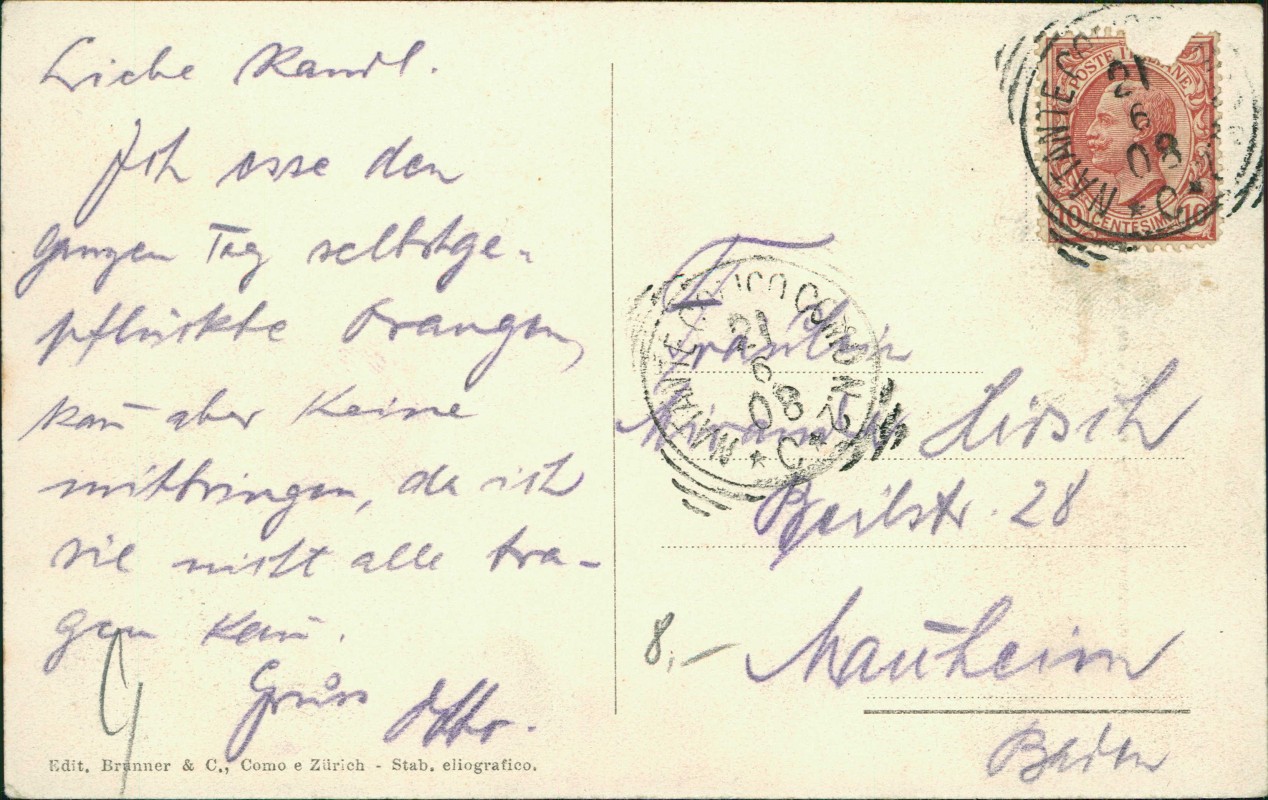 Liebe Kandl.
Ich esse den
ganzen Tag selbstge-
pflückte Orangen,
kan̄ aber keine
mitbringen, da ich
sie nicht alle tra-
gen kan̄.
Gruss Otto.
Edit. Brunner & C., Como e Zürich - Stab. eliografico.
POSTE ITALIANE
10 CENTESIMI 10
NATANTE CO
21
6
08
* C *
Fräulein
Hirsch
Beilstr. 28
Man̄heim
Baden
NATANTE COMO N 2
21
6
08
* C *
8.-